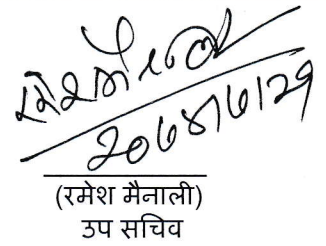 २०७४।७।२१
(रमेश मैनाली)
उप सचिव